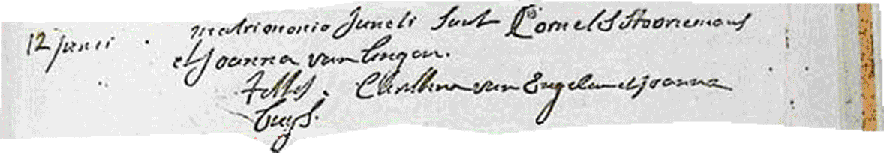 12 junii . matrimonio juncti sunt Cornelis Stooremans
et Joanna van Lingen.
Testes . Christina van Engelen et Joanna
Buys.